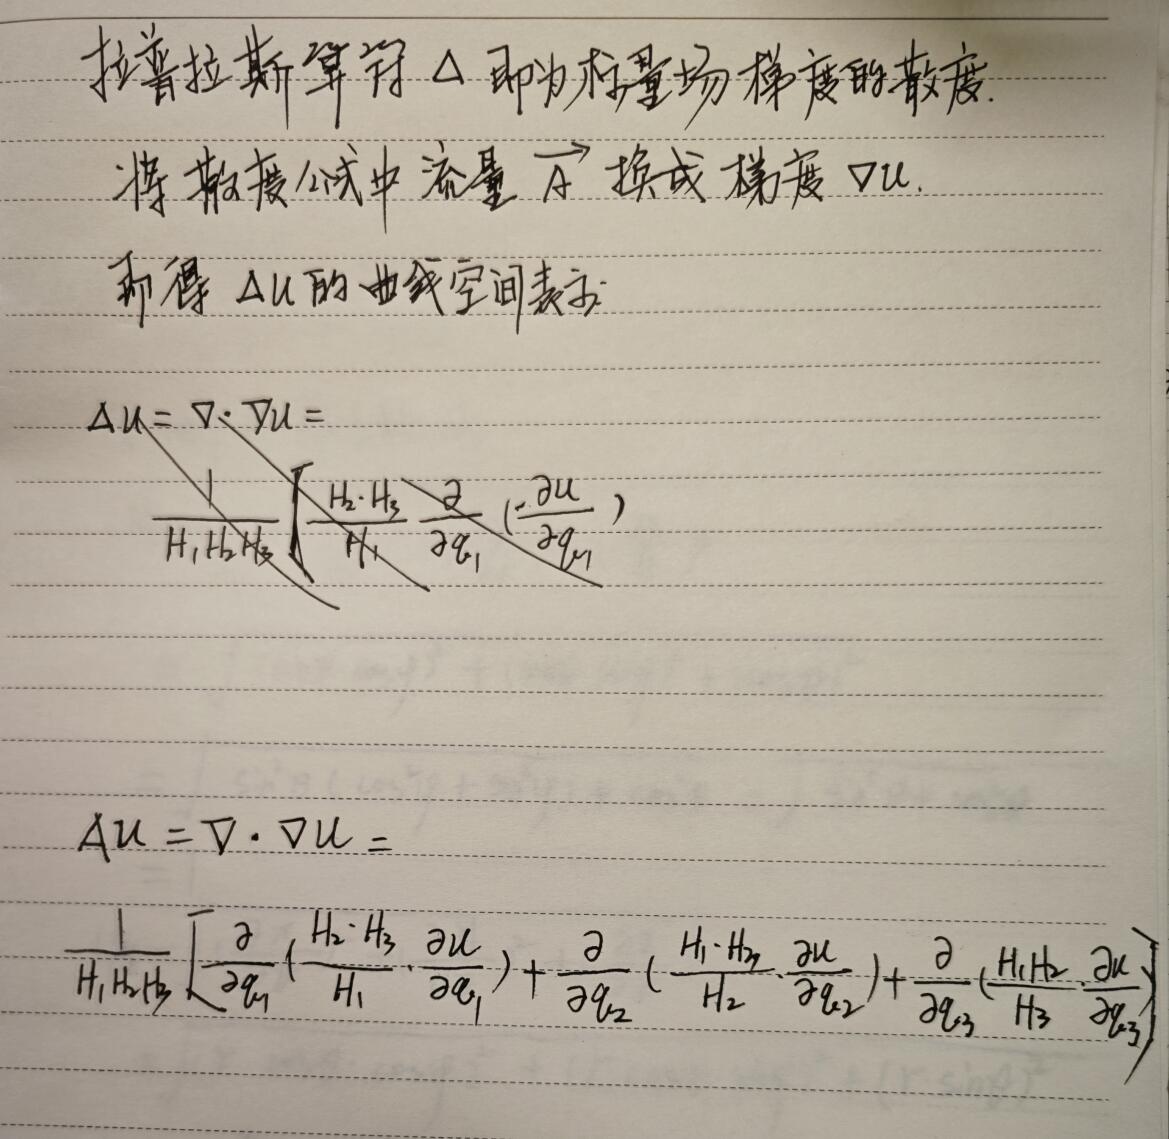 拉普拉斯算符 Δ 即为标量场梯度的散度.
将散度公式中流量 $\vec{A}$ 换成梯度 ∇u.
即得 Δu 的曲线空间表示
Δu = ∇·∇u =
$\frac{1}{H_1 H_2 H_3} [ \frac{H_2 \cdot H_3}{H_1} \frac{\partial}{\partial q_1} ( \frac{\partial u}{\partial q_1} )$
Δu = ∇·∇u =
$\frac{1}{H_1 H_2 H_3} [ \frac{\partial}{\partial q_1} ( \frac{H_2 \cdot H_3}{H_1} \cdot \frac{\partial u}{\partial q_1} ) + \frac{\partial}{\partial q_2} ( \frac{H_1 \cdot H_3}{H_2} \cdot \frac{\partial u}{\partial q_2} ) + \frac{\partial}{\partial q_3} ( \frac{H_1 H_2}{H_3} \cdot \frac{\partial u}{\partial q_3} ) ]$